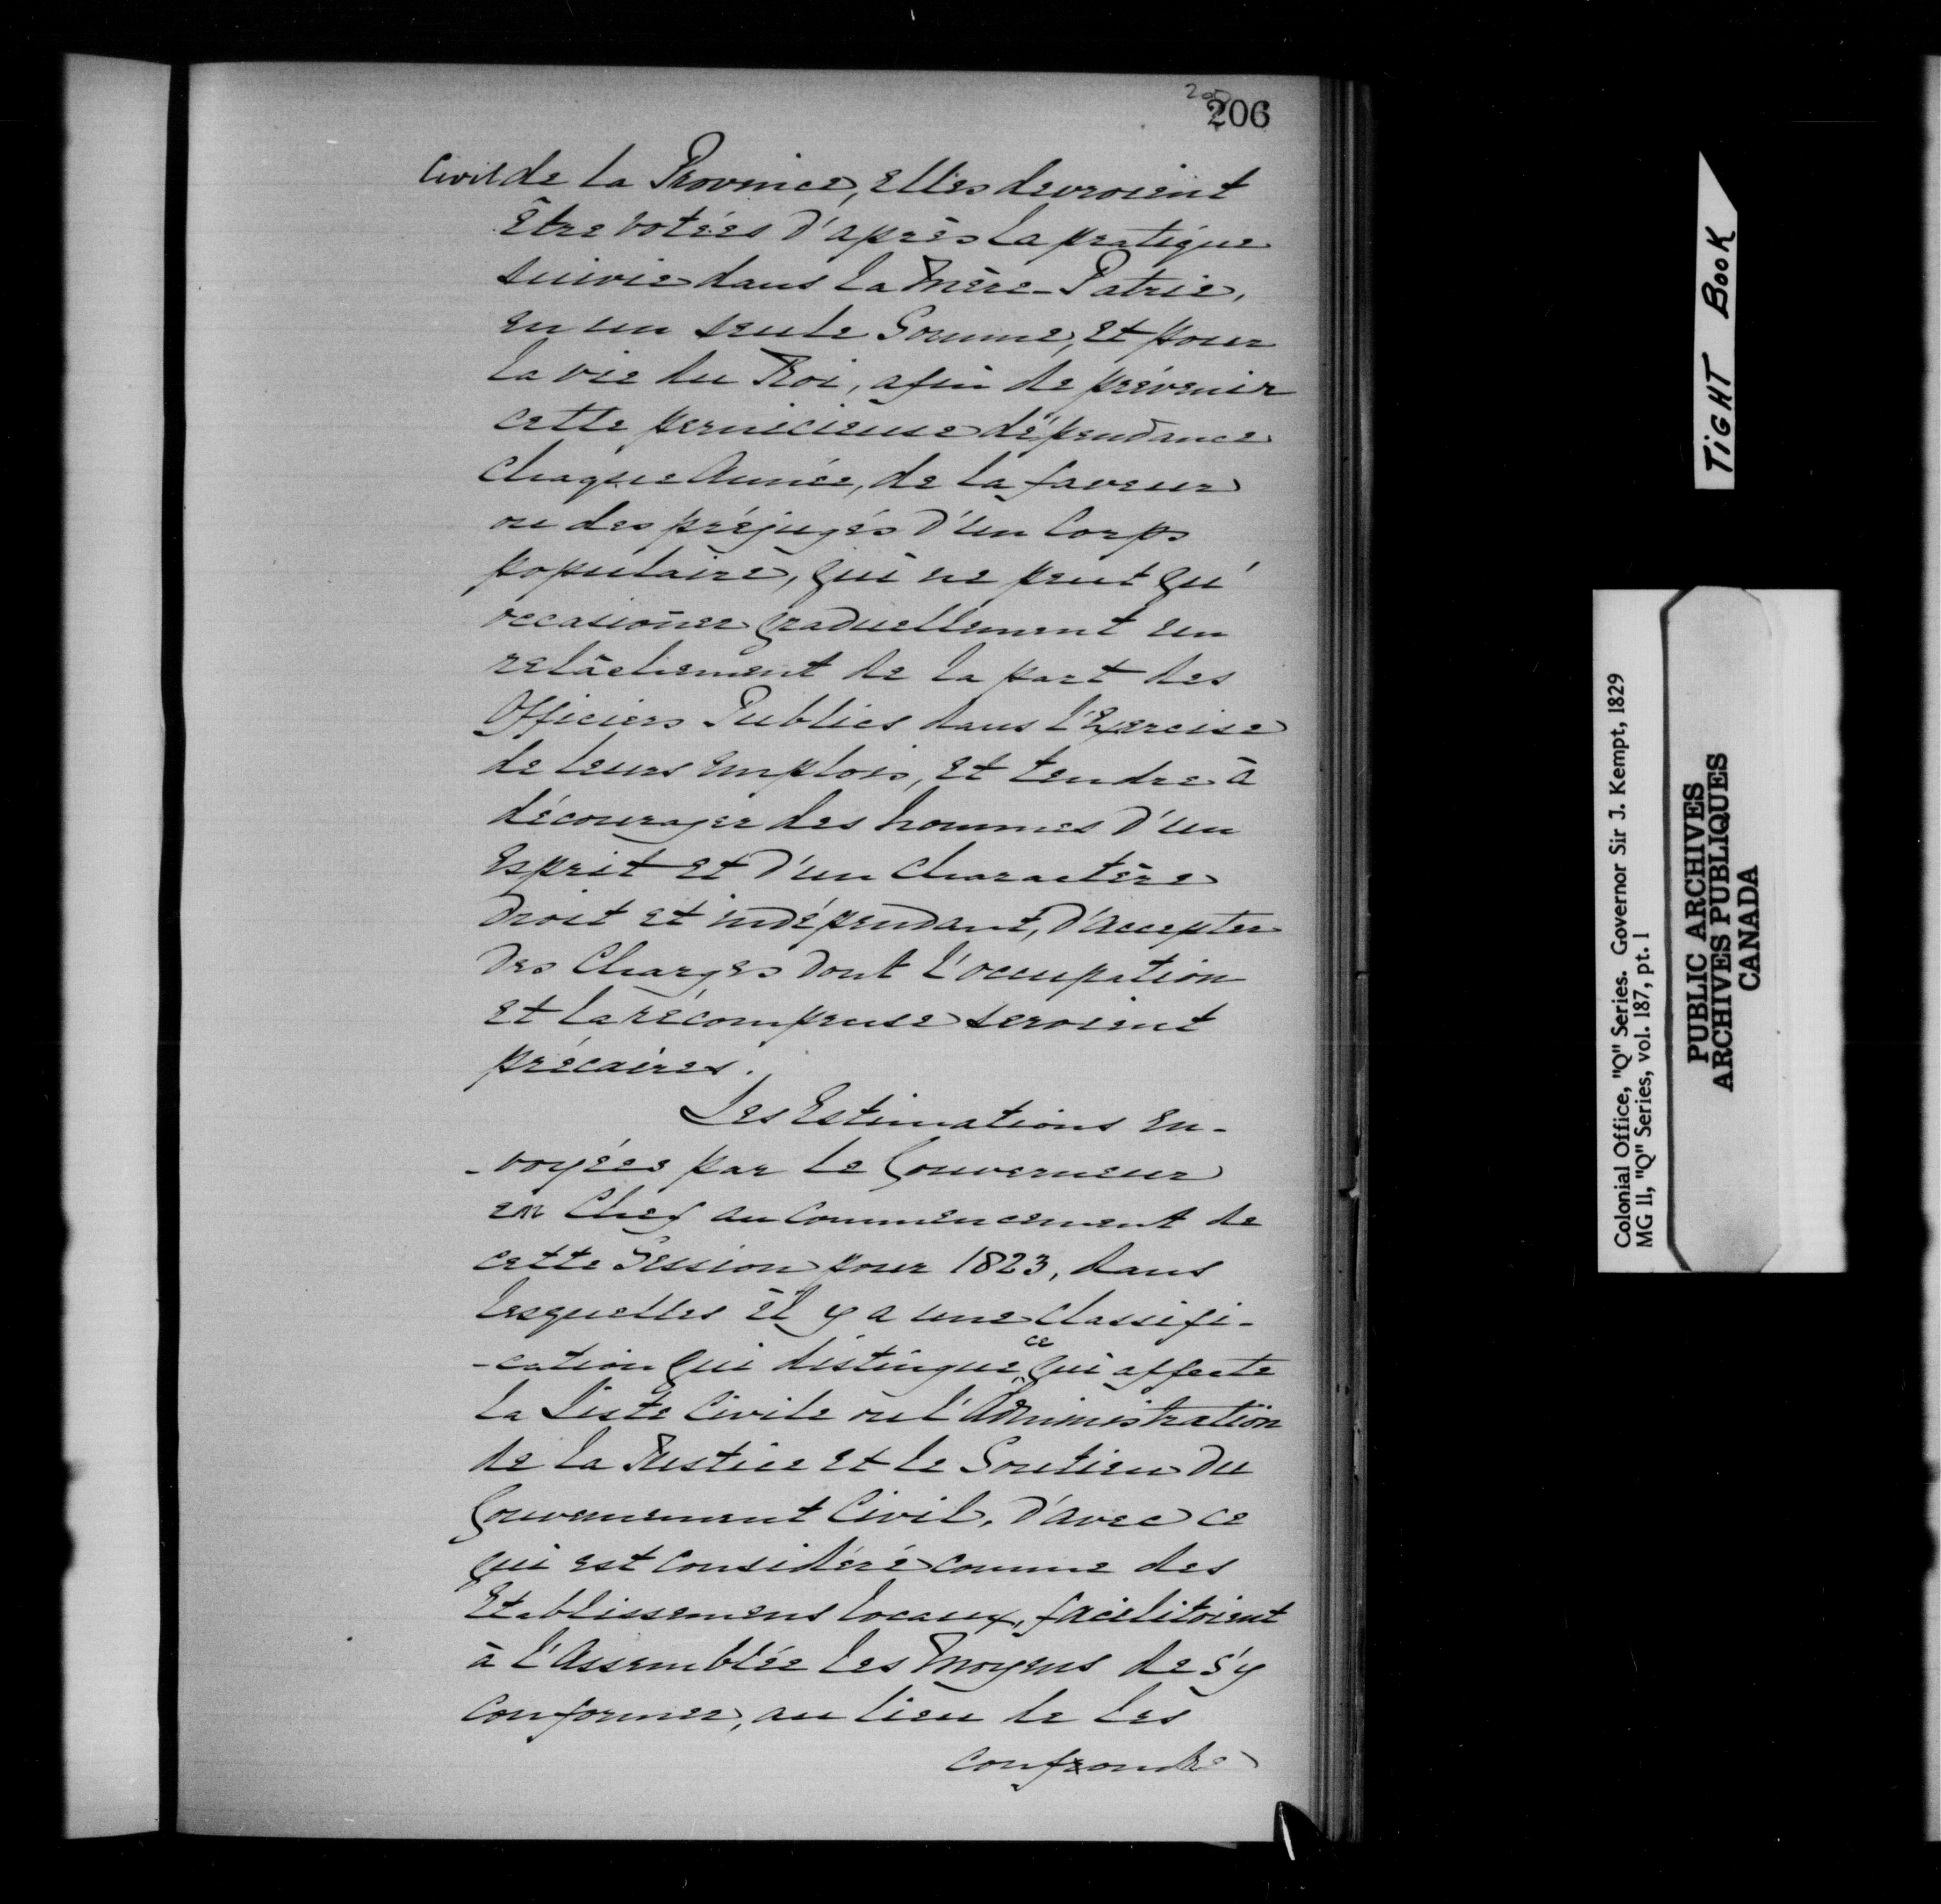 205
206
Civil de la Province, elles devroient
être votées d'après la pratique
suivie dans la Mère-Patrie,
en un seule Somme, et pour
la vie du Roi, afin de prévenir
cette pernicieuse dépendance
chaque Année, de la faveur
ou des préjugés d'un Corps
populaire, qui ne peut qu'
occasioner graduellement un
relâchement de la part des
Officiers Publics dans l'Exercise
de leurs emplois, et tendre à
décourager des hommes d'un
Esprit et d'un Charactère
droit et indépendant, d'accepter
des Charges dont l'occupation
et la récompense seroient
précaires.
Les Estimations en-
-voyées par le Gouverneur
en Chef au commencement de
cette Session pour 1823, dans
lesquelles il y a une classifi-
-cation qui distingue ce qui affecte
la Liste Civile ou l'Administration
de la Justice et le Soutien du
Gouvernement Civil, d'avec ce
qui est considéré comme des
Etablissemens locaux, facilitoient
à l'Assemblée les Moyens de s'y
conformer, au lieu de les
confrondre
TIGHT BOOK
Colonial Office, "Q" Series. Governor Sir J. Kempt, 1829
MG 11, "Q" Series, vol. 187, pt. 1
PUBLIC ARCHIVES
ARCHIVES PUBLIQUES
CANADA